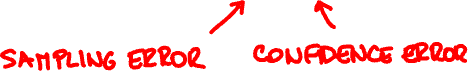 SAMPLING ERROR CONFIDENCE ERROR